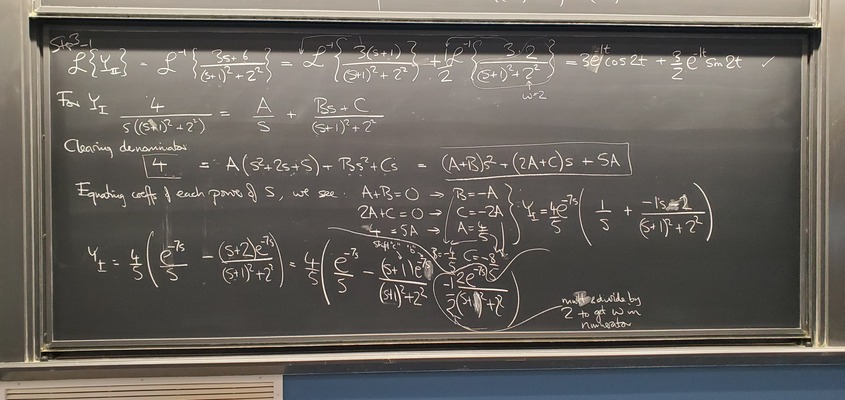 Step 3
L⁻¹{Y_II} = L⁻¹{(3s+6)/((s+1)²+2²)} = L⁻¹{3(s+1)/((s+1)²+2²)} + 1/2 L⁻¹{3·2/((s+1)²+2²)} = 3e^{-1t}cos2t + 3/2 e^{-1t} sin2t ✓
ω=2
For Y_I 4/(s((s+1)²+2²)) = A/s + (Bs+C)/((s+1)²+2²)
Clearing denominator
4 = A(s²+2s+5) + Bs² + Cs = (A+B)s² + (2A+C)s + 5A
Equating coeffs of each power of s, we see: A+B=0 → B=-A
2A+C=0 → C=-2A
4=5A → A=4/5
B=-4/5 C=-8/5
Y_I = 4/5 e^{-7s}(1/s + (-1s-2)/((s+1)²+2²))
Y_I = 4/5(e^{-7s}/s - (s+2)e^{-7s}/((s+1)²+2²)) = 4/5(e^{-7s}/s - (s+1)e^{-7s}/((s+1)²+2²) - 1/2 2e^{-7s}/((s+1)²+2²))
mult & divide by
2 to get ω in
numerator